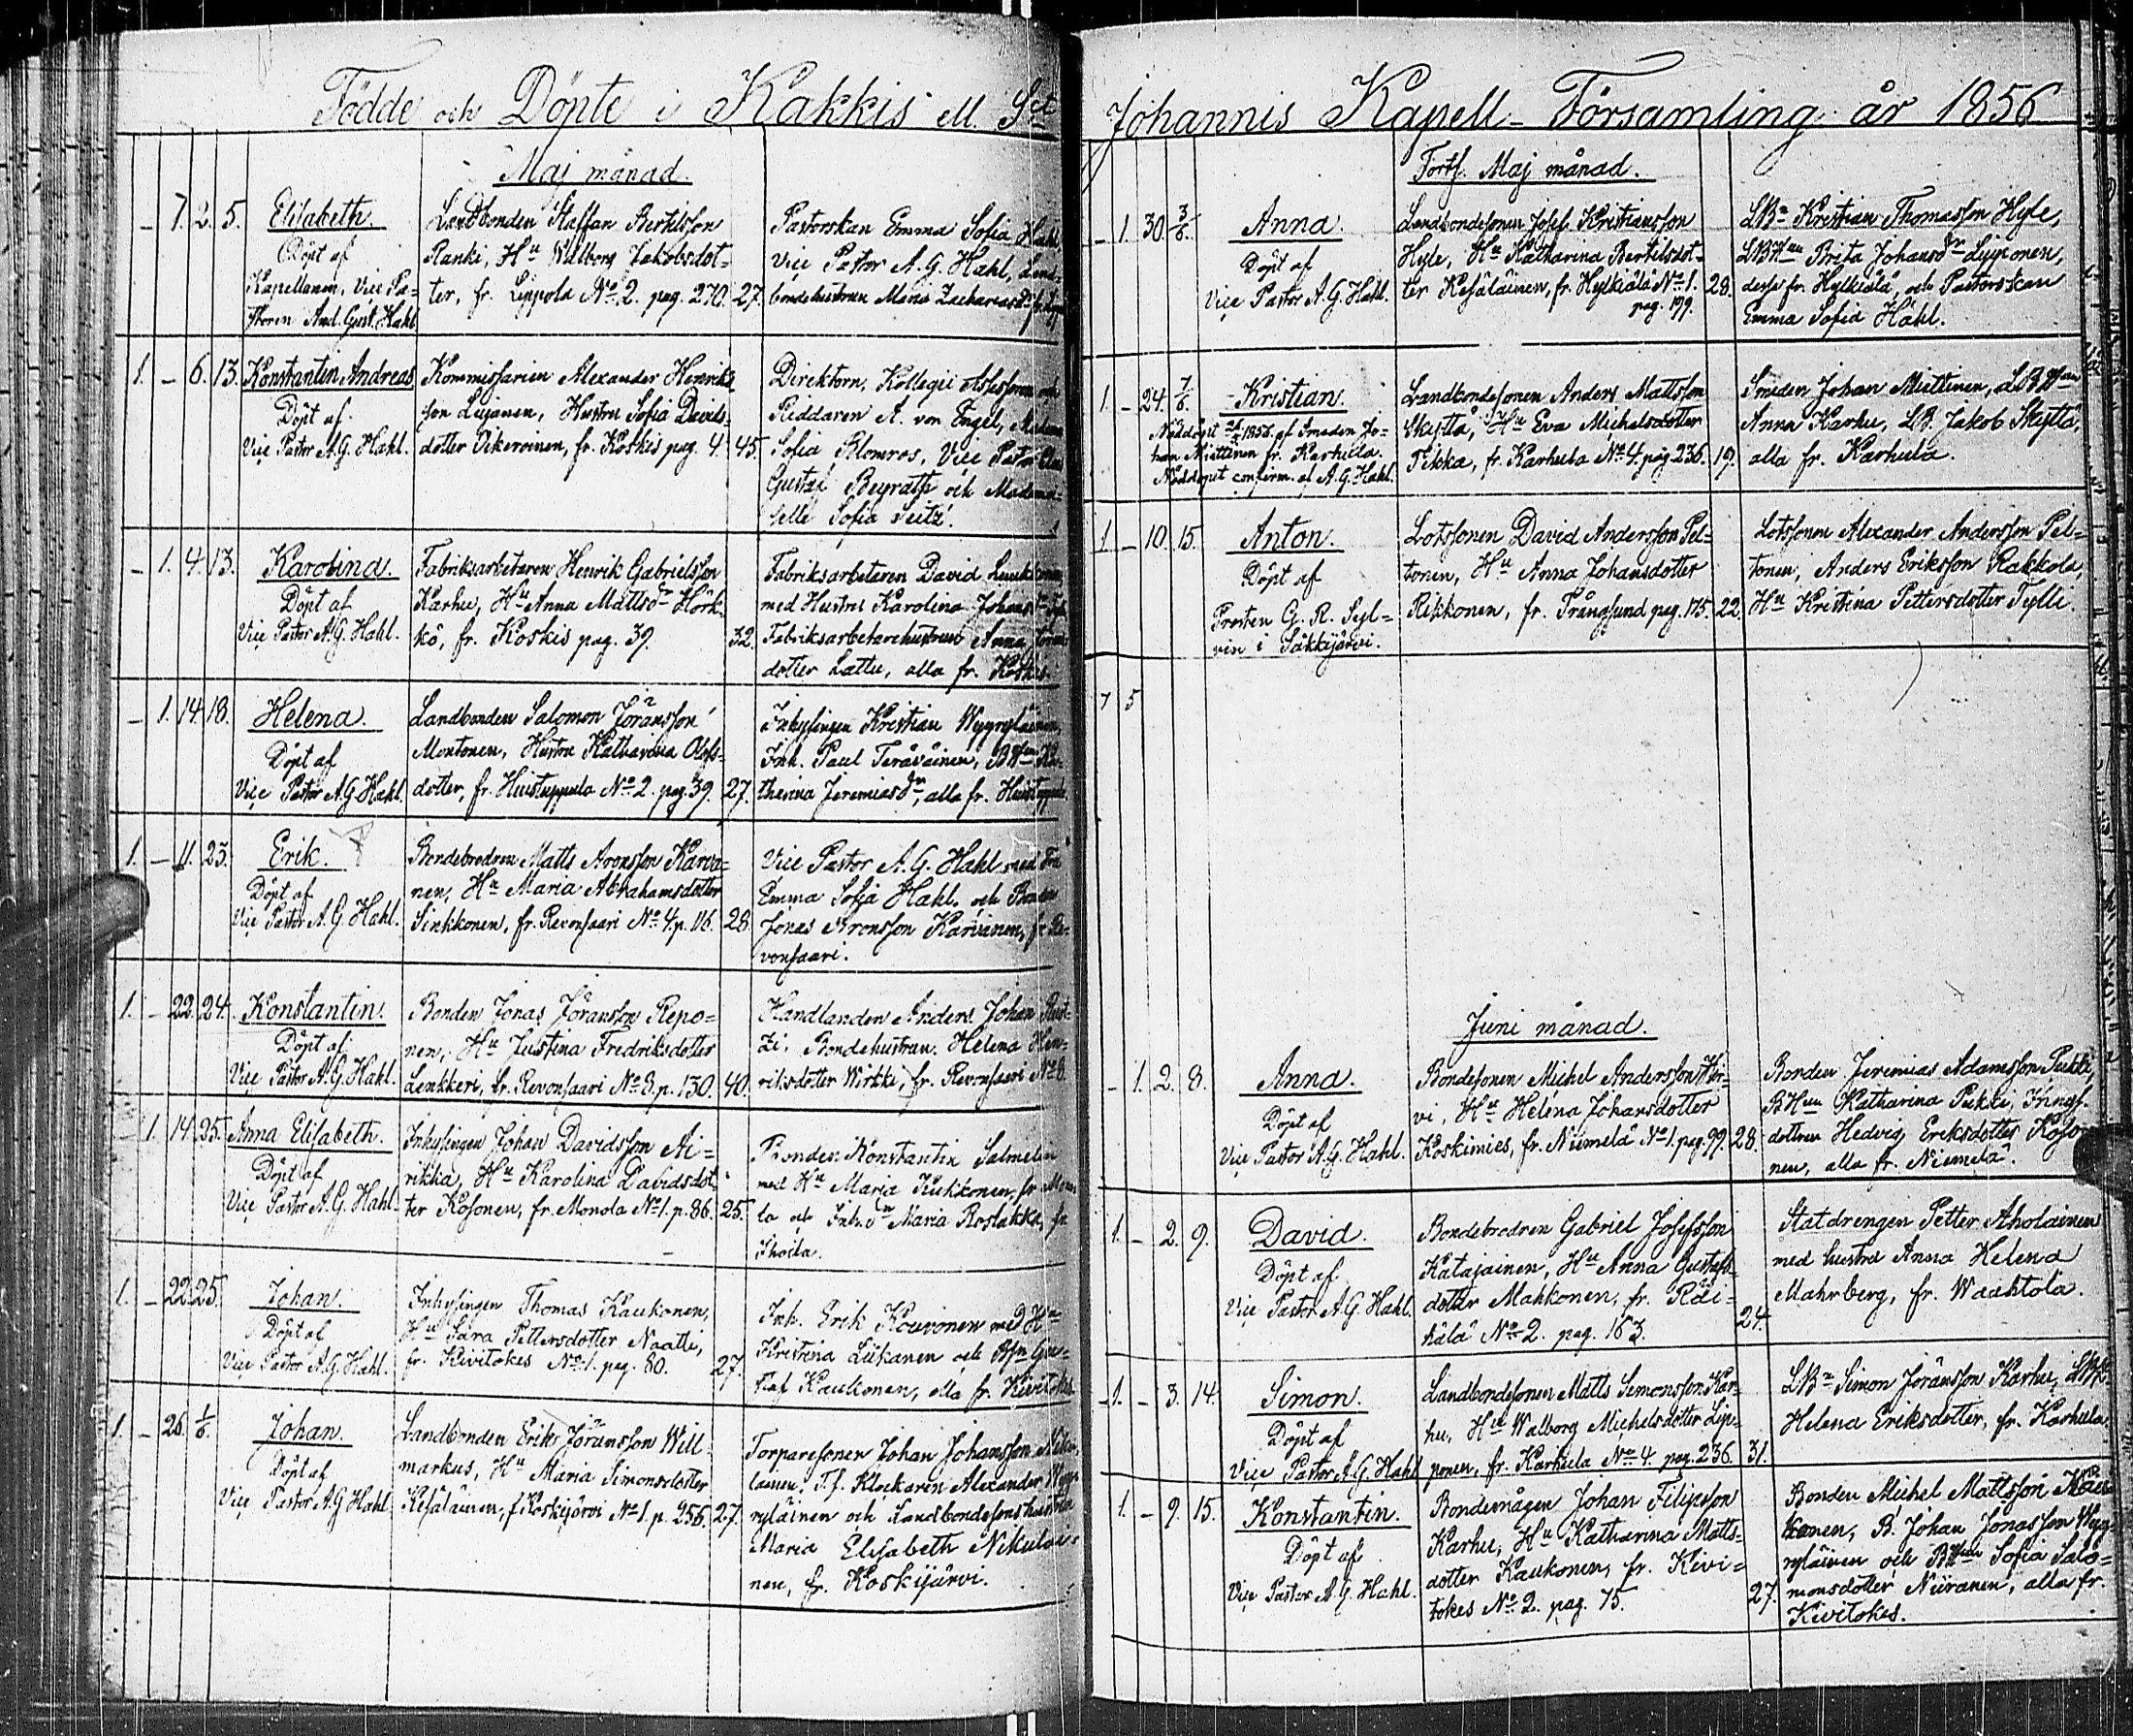 Födde och Döpte i Kakkis M. Sct
Maj månad.
- 1. 2. 5. Elisabeth.
Döpt af
Kapellanen, Vice Pa=
storn And. Gust. Hahl
Landbonden Staffan Bertilsson
Ranki, Hu Walborg Jakobsdot=
ter, fr. Leppola No 2. pag. 270. 27.
Pastorskan Emma Sofia Hahl,
Vice Pastor A. G. Hahl, Land=
bondehustrun Maria Zachariasdr
1. - 6. 13. Konstantin Andreas
Döpt af
Vice Pastor A. G. Hahl.
Kommissarien Alexander Henriks
son Leijanen, Hustru Sofia Davids=
dotter Oikeroinen, fr. Koskis pag. 4. 45.
Direktorn, Kollegii Assessoren och
Riddaren A. von Engel, Madame
Sofia Blomros, Vice Pastor
Gustaf Beyrath och Mademoi=
selle Sofia Seitz.
- 1. 4. 13. Karolina.
Döpt af
Vice Pastor A. G. Hahl.
Fabriksarbetaren Henrik Gabrielsson
Karhu, Hu Anna Mattsdr Hörk=
kö, fr. Koskis pag. 39. 32.
Fabriksarbetaren David
med Hustru Karolina Johansdr
Fabriksarbetarehustrun Anna
dotter Lattu, alla fr. Koskis.
- 1. 14. 18. Helena.
Döpt af
Vice Pastor A. G. Hahl.
Landbonden Salomon Jöransson
Montonen, Hustru Katharina Olofs=
dotter, fr. Huistuppula No 2. pag. 39. 27.
Inhysingen Kristian Wepsäläinen,
Inh. Paul Teräväinen, BHun Ka=
tharina Jeremiasdr, alla fr. Huistuppula.
1. - 11. 23. Erik.
Döpt af
Vice Pastor A. G. Hahl.
Bondebrodren Matts Aronsson Karva=
nen, Hu Maria Abrahamsdotter
Sinkkonen, fr. Revonsaari No 4. p. 116. 28.
Vice Pastor A. G. Hahl med Fru
Emma Sofia Hahl. och Bonden
Jonas Aronsson Karvanen, fr. Re=
vonsaari.
1. - 22. 24. Konstantin.
Döpt af
Vice Pastor A. G. Hahl.
Bonden Jonas Jöransson Repo=
nen, Hu Justina Fredriksdotter
Lenkkeri, fr. Revonsaari No 8. p. 130. 40.
Handlanden Anders Johan
Bondehustrun Helena Hen=
riksdotter Wirkki, fr. Revonsaari No 8.
- 1. 14. 25. Anna Elisabeth.
Döpt af
Vice Pastor A. G. Hahl.
Inhysingen Johan Davidsson Ai=
rikka, Hu Karolina Davidsdot=
ter Kosonen, fr. Monola No 1. p. 86. 25.
Bonden Konstantin Salmelin
med Hu Maria Kukkonen, fr. Mono=
la och Inh. dr Maria Rostakka, fr.
Ihoila.
1. - 22. 25. Johan.
Döpt af
Vice Pastor A. G. Hahl.
Inhysingen Thomas Kaukonen,
Hu Sara Pettersdotter Naatti,
fr. Kivitokes No 1. pag. 80. 27.
Inh. Erik Kouvonen med Hu
Kristina Liikanen och Bsn Gu=
staf Kaukonen, alla fr. Kivitokes.
1. - 26. 1/6. Johan.
Döpt af
Vice Pastor A. G. Hahl
Landbonden Erik Jöransson Will=
markus, Hu Maria Simonsdotter
Kesäläinen, f. Koskijärvi No 1. p. 256. 27.
Torparesonen Johan Johansson
lainen, T.f. Klockaren Alexander
ryläinen och Landbondesonshustrun
Maria Elisabeth Nikulai=
nen, fr. Koskijärvi.
Johannis Kapell-Församling år 1856
Forts. Maj månad.
- 1. 30. 3/6. Anna.
Döpt af
Vice Pastor A. G. Hahl.
Landbondesonen Josef Kristiansson
Hyle, Hu Katharina Bertilsdot=
ter Kesäläinen, fr. Hylkiälä No 1. 28.
pag. 199.
LBn Kristian Thomasson Hyle,
LBHun Brita Johansdr Lipponen,
desse fr. Hylkiälä, och Pastorskan
Emma Sofia Hahl.
1. - 24. 7/6. Kristian.
Nöddöpt 1856 af Smeden Jo=
han Miettinen fr. Karhula.
Nöddopet confirm. af A. G. Hahl.
Landbondesonen Anders Mattsson
Skyttä, Hu Eva Michelsdotter
Pekka, fr. Karhula No 4. pag 236. 19.
Smeden Johan Miettinen, LBHun
Anna Karhu, LB. Jakob Skyttä,
alla fr. Karhula.
1 - 10. 15. Anton.
Döpt af
Prosten G. R. Segl=
vin i Säkkijärvi.
Lotssonen David Andersson Pel=
tonen, Hu Anna Johansdotter
Rikkonen, fr. Trångsund pag. 175. 22.
Lotssonen Alexander Andersson Pel=
tonen, Anders Eriksson Rakkola,
Hu Kristina Pettersdotter Tylli.
7 5
Juni månad.
- 1. 2. 8. Anna.
Döpt af
Vice Pastor A. G. Hahl.
Bondesonen Michel Andersson Hir=
vi, Hu Helena Johansdotter
Koskimies, fr. Niemelä No 1. pag. 99. 28.
Bonden Jeremias Adamsson Pukki,
BHun Katharina Pukki, Inhys.
dottren Hedvig Eriksdotter Koso=
nen, alla fr. Niemelä.
1. - 2. 9. David.
Döpt af
Vice Pastor A. G. Hahl.
Bondebrodren Gabriel Josefsson
Katajainen, Hu Anna Gustafs=
dotter Mahkonen, fr. Räi=
hälä No 2. pag. 163. 24.
Statdrengen Petter Aholainen
med hustru Anna Helena
Mahrberg, fr. Waahtola.
1. - 3. 14. Simon.
Döpt af
Vice Pastor A. G. Hahl
Landbondesonen Matts Simonsson Kar=
hu, Hu Walborg Michelsdotter Lip=
ponen, fr. Karhula No 4. pag. 236. 31.
LBn Simon Jöransson Karhu,
Helena Eriksdotter, fr. Karhula.
1. - 9. 15. Konstantin.
Döpt af
Vice Pastor A. G. Hahl.
Bondemågen Johan Filipsson
Karhu, Hu Katharina Matts=
dotter Kaukonen, fr. Kivi=
tokes No 2. pag. 75. 27.
Bonden Michel Mattsson Kau=
konen, B. Johan Jonasson
ryläinen och BHun Sofia Salo=
monsdotter Niiranen, alla fr.
Kivitokes.